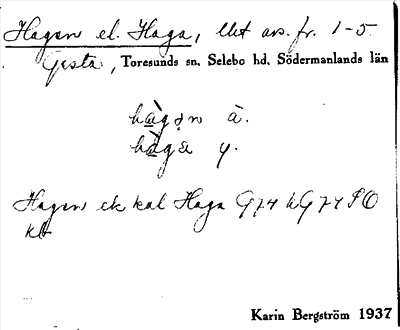 Hagen el. Haga, lht avs. fr. 1-5
Gesta, Toresunds sn. Selebo hd. Södermanlands län
hàgǝn ä.
hàga y.
Hagen ek kal Haga G74 kG74 SO
kb
Karin Bergström 1937